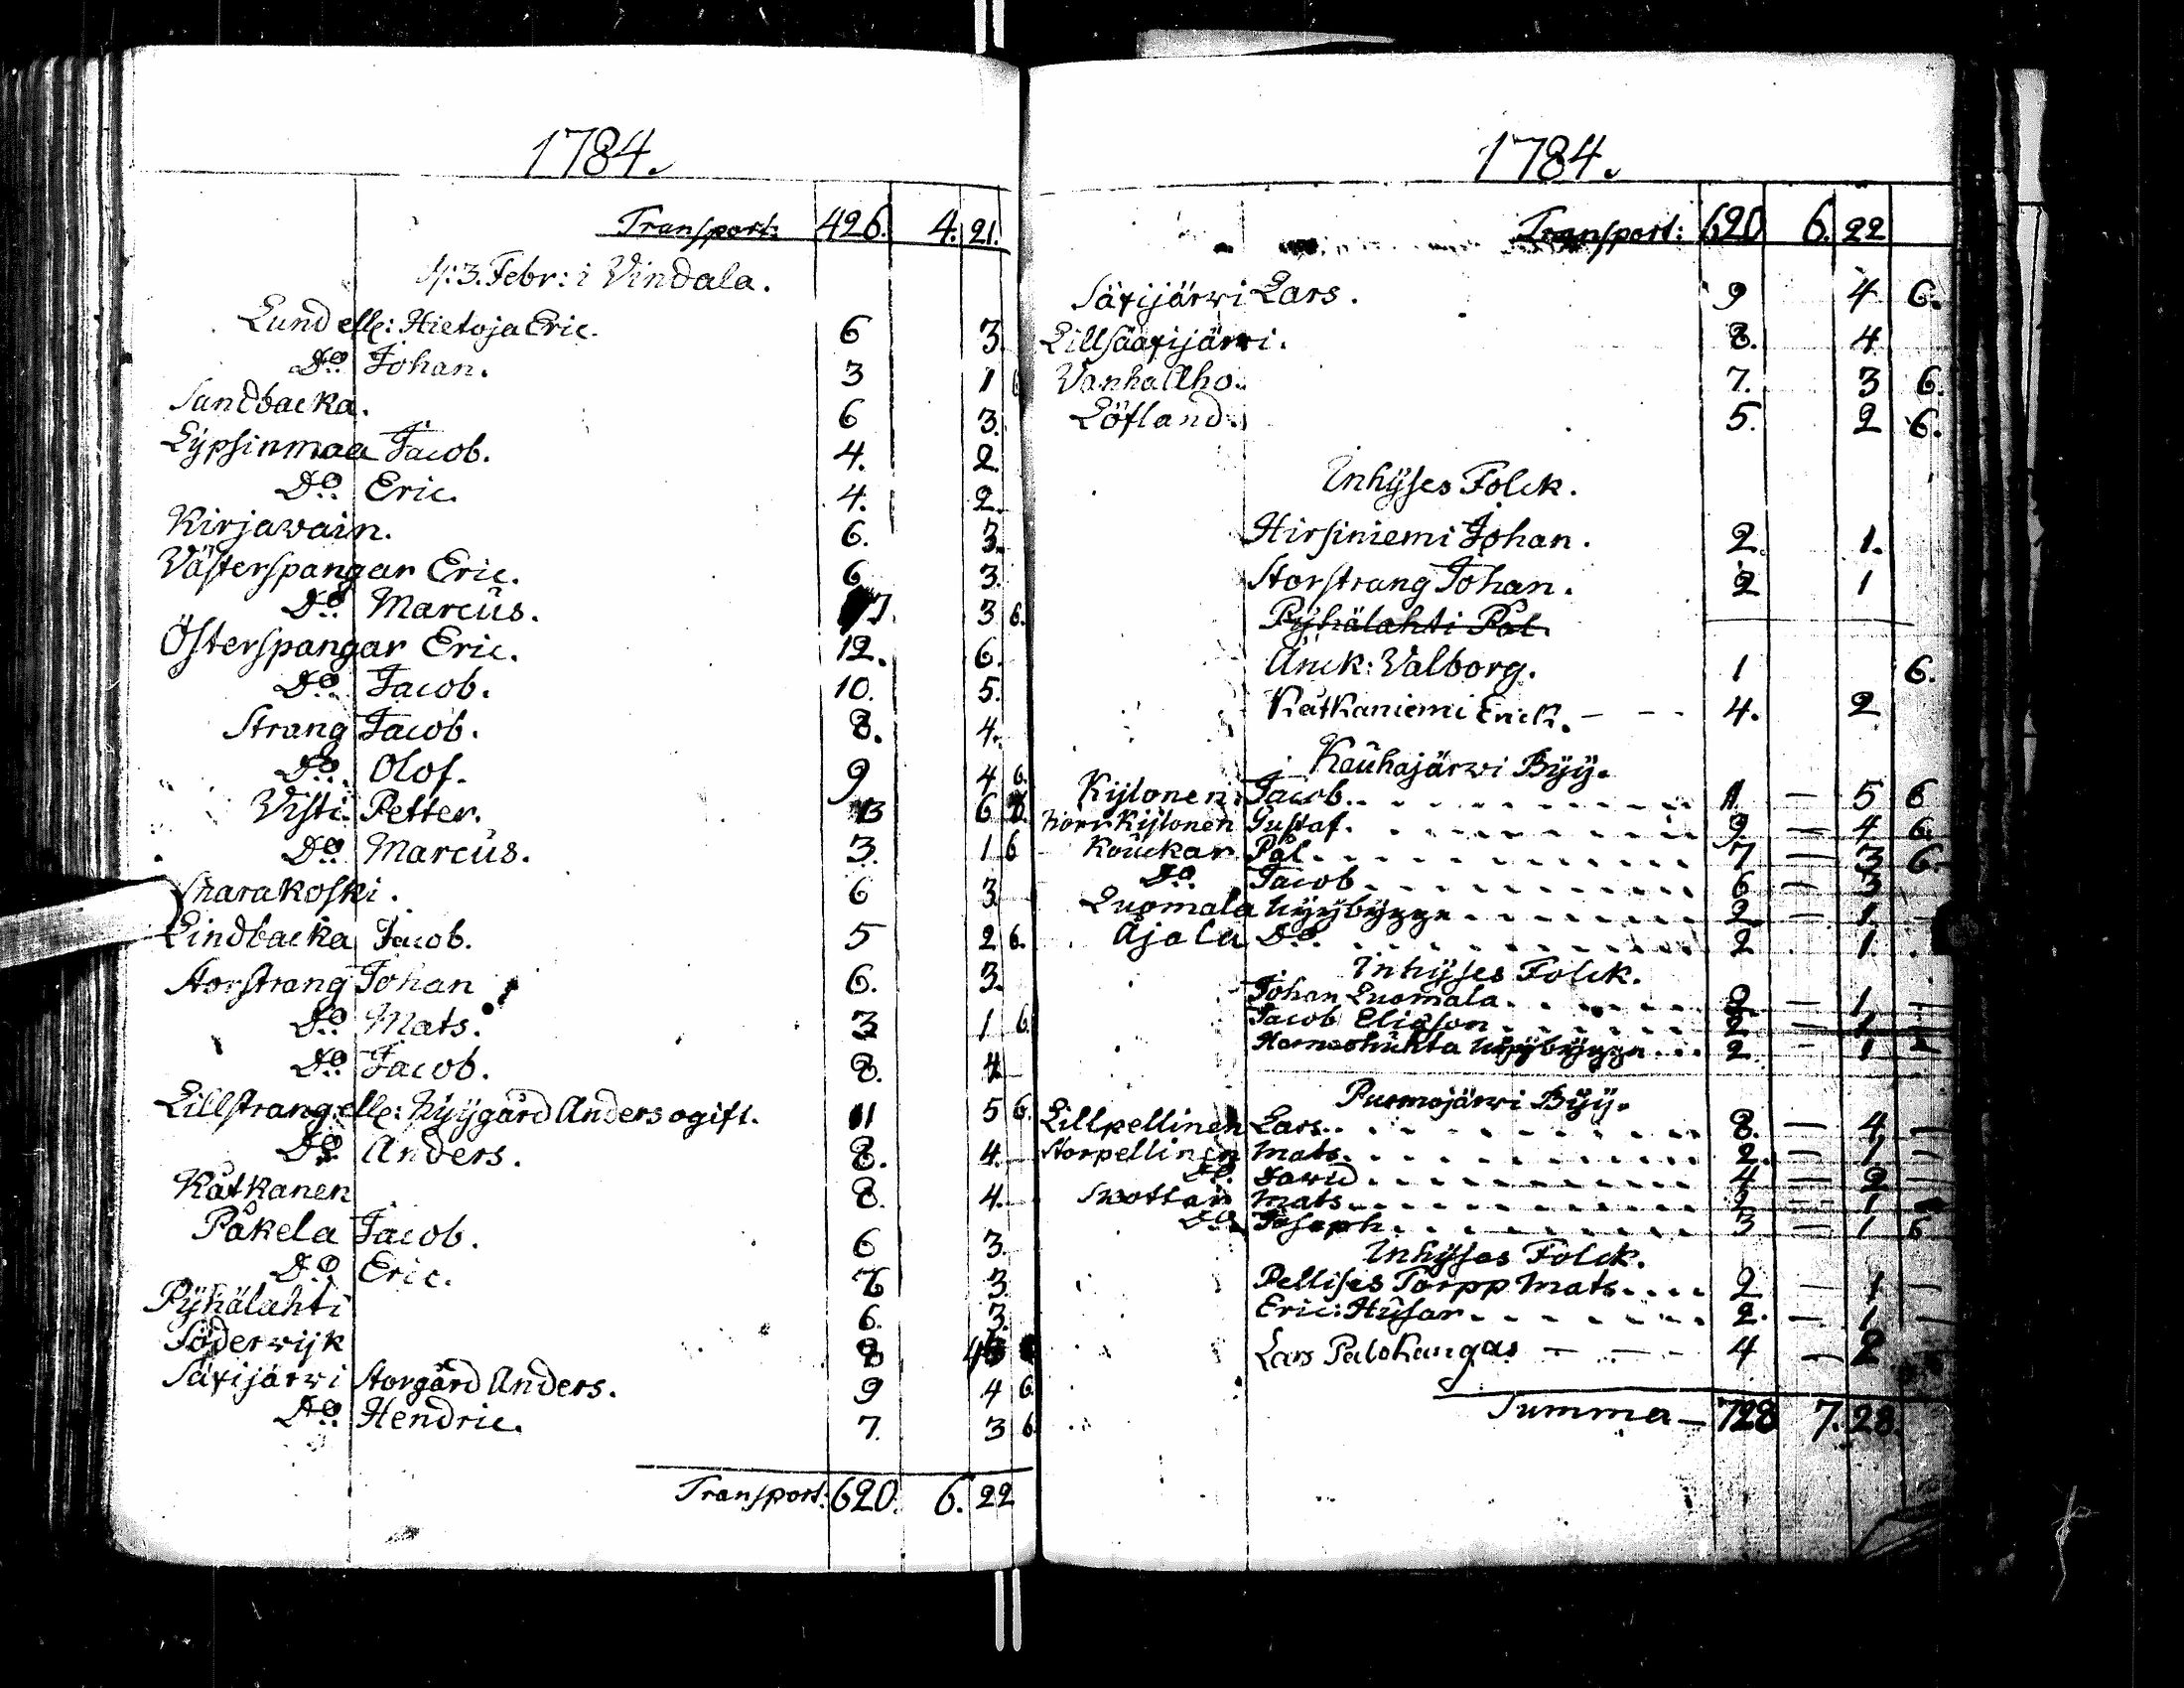 1784.
Transport: 426. 4. 21.
d: 3. Febr: i Vindala.
Lund elle: Hietoja Eric. 6 3.
Do Johan. 3 1 6
Sandbacka. 6 3.
Lypsinmaa Jacob. 4. 2.
Do Eric. 4. 2.
Kirjavain. 6. 3.
Västerspangar Eric. 6 3.
Do Marcus. 7. 3 6.
Österspangar Eric. 12. 6.
Do Jacob. 10. 5.
Strang Jacob. 8. 4.
Do Olof. 9 4 6.
Visti Petter. 13 6 6.
Do Marcus. 3. 1 6
Sharakoski. 6 3
Lindbacka Jacob. 5 2 6.
Storstrang Johan 6. 3.
Do Mats. 3 1 6.
Do Jacob. 8. 4
Lillstrang elle: Nyygård Anders ogift. 11 5 6.
Do Anders. 8. 4.
Kåtkanen 8. 4.
Påkela Jacob. 6 3.
Do Eric. 6 3.
Pyhälahti 6. 3.
Söderwijk 8 4
Säxijärwi Storgård Anders. 9 4 6
Do Hendric. 7. 3 6
Transport: 620. 6. 22
1784.
Transport: 620 6. 22
Säxijärwi Lars. 9 4 6.
Lillsääxijärwi. 8. 4
Vanhallho. 7. 3 6.
Löfland. 5. 2 6.
Inhyses Folck.
Hirsiniemi Johan. 2. 1.
Storstrang Johan. 2 1
Pyhälahti Pål.
Änck: Valborg. 1 6.
Kåtkaniemi Erick. - - - 4. 2
Kauhajärwi Byy.
Kylonen Jacob. 11 — 5 6
Norr Kylonen Gustaf. 9 — 4 6.
Kouckar Pål. 7 — 3 6.
Do Jacob. 6 — 3
Luomala Nyybygge 2 — 1
Åjala Do. 2 1.
Inhyses Folck.
Johan Luomala. 2 — 1 —
Jacob Eliason 2 — 1
Nyybygge 2 — 1 —
Purmojärwi Byy.
Lillpellinen Lars. 8. — 4 —
Storpellinen Mats. 2. — 1 —
Do. David. 4 — 2 —
Mats. 2 — 1
Do Joseph. 3 — 1 6
Inhyses Folck.
Pellises Torpp Mats. 2 — 1 —
Eric: Husar. 2. — 1 —
Lars Palokangas — — - 4 — 2
Summa — 728 7. 28.